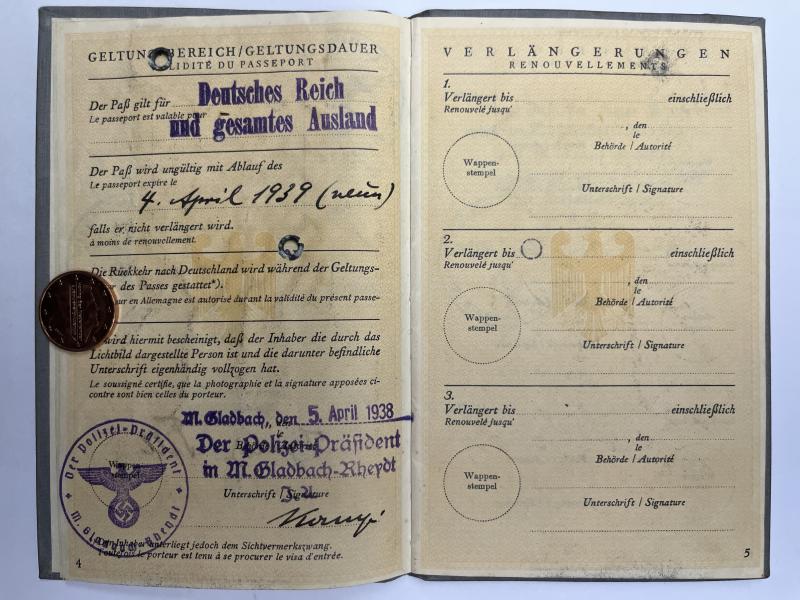 GELTUNGSBEREICH/GELTUNGSDAUER
VALIDITÉ DU PASSEPORT
Der Paß gilt für Deutsches Reich
Le passeport est valable pour
und gesamtes Ausland
Der Paß wird ungültig mit Ablauf des
Le passeport expire le
4. April 1939 (neun)
falls er nicht verlängert wird.
à moins de renouvellement.
Die Rückkehr nach Deutschland wird während der Geltungs-
des Passes gestattet*).
en Allemagne est autorisé durant la validité du présent passe-
wird hiermit bescheinigt, daß der Inhaber die durch das
Lichtbild dargestellte Person ist und die darunter befindliche
Unterschrift eigenhändig vollzogen hat.
Le soussigné certifie, que la photographie et la signature apposées ci-
contre sont bien celles du porteur.
M. Gladbach, den 5. April 1938
Der Polizei-Präsident
in M. Gladbach-Rheydt
Unterschrift / Signature
Der Polizei-Präsident
Wappen-
stempel
M. Gladbach-Rheydt
Inhaber unterliegt jedoch dem Sichtvermerkszwang.
Toutefois le porteur est tenu à se procurer le visa d'entrée.
4
VERLÄNGERUNGEN
RENOUVELLEMENTS
1.
Verlängert bis einschließlich
Renouvelé jusqu'
, den
le
Behörde / Autorité
Wappen-
stempel
Unterschrift / Signature
2.
Verlängert bis einschließlich
Renouvelé jusqu'
, den
le
Behörde / Autorité
Wappen-
stempel
Unterschrift / Signature
3.
Verlängert bis einschließlich
Renouvelé jusqu'
, den
le
Behörde / Autorité
Wappen-
stempel
Unterschrift / Signature
5